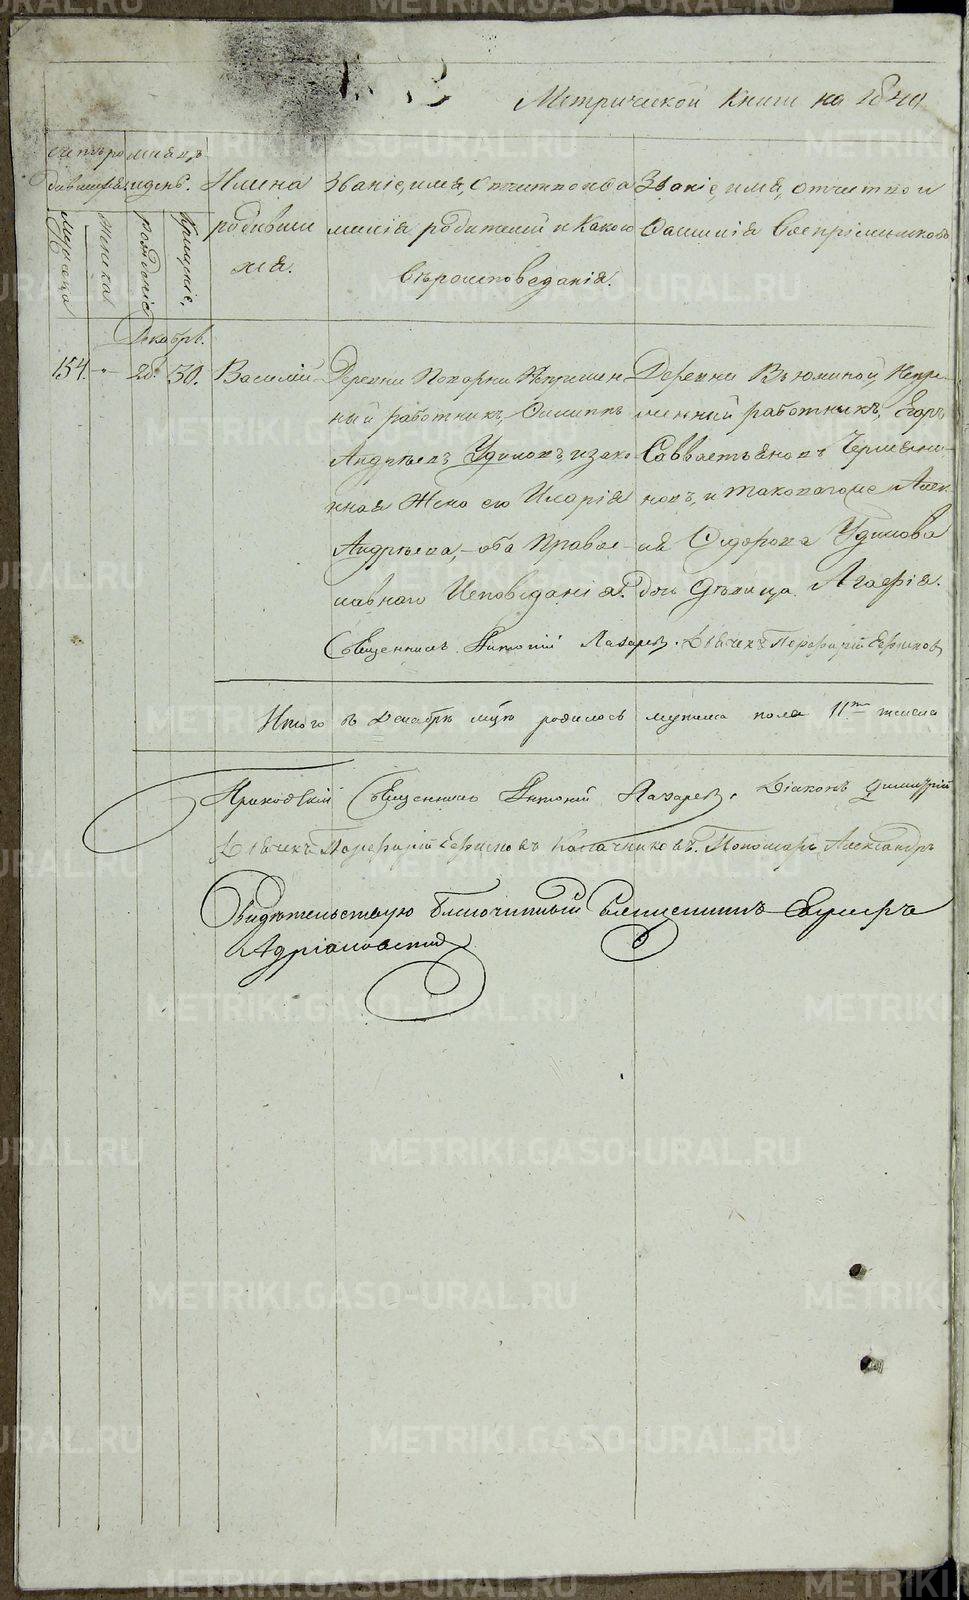 Метрической книги на 1840
счетъ родившихся
мѣсяцъ и день.
Имена родившихся.
Званіе, имя, отчество и фамилія родителей и какого вѣроисповѣданія.
Званіе, имя, отчество и фамилія воспріемниковъ
Мужеска
Женска
Рожденіе
Крещеніе.
Декабрь.
154. - 28. 30. Василій
Деревни Токарки Непремѣн-
ный работникъ, Филиппъ
Андреевъ Удиловъ и зако-
нная жена его Иларія
Андреева, оба Право-
славнаго Исповѣданія.
Деревни Вьюхиной, Непре-
мѣнный работникъ, Егоръ
Савватѣяновъ
новъ, и таковагоже
Сидорова Удилова
дочь дѣвица Агафія.
Священникъ Антоній Лазаревъ. Дьячекъ Порфирій
Итого въ Декабрѣ мцѣ родилось мужска пола 11ть женска
Приходскій Священникъ Антоній Лазаревъ. Діаконъ Димитрій
Дьячекъ Порфирій Калачниковъ. Пономарь Александръ
Свидѣтельствую Благочинный Священникъ
Адріановскій
METRIKI.GASO-URAL.RU